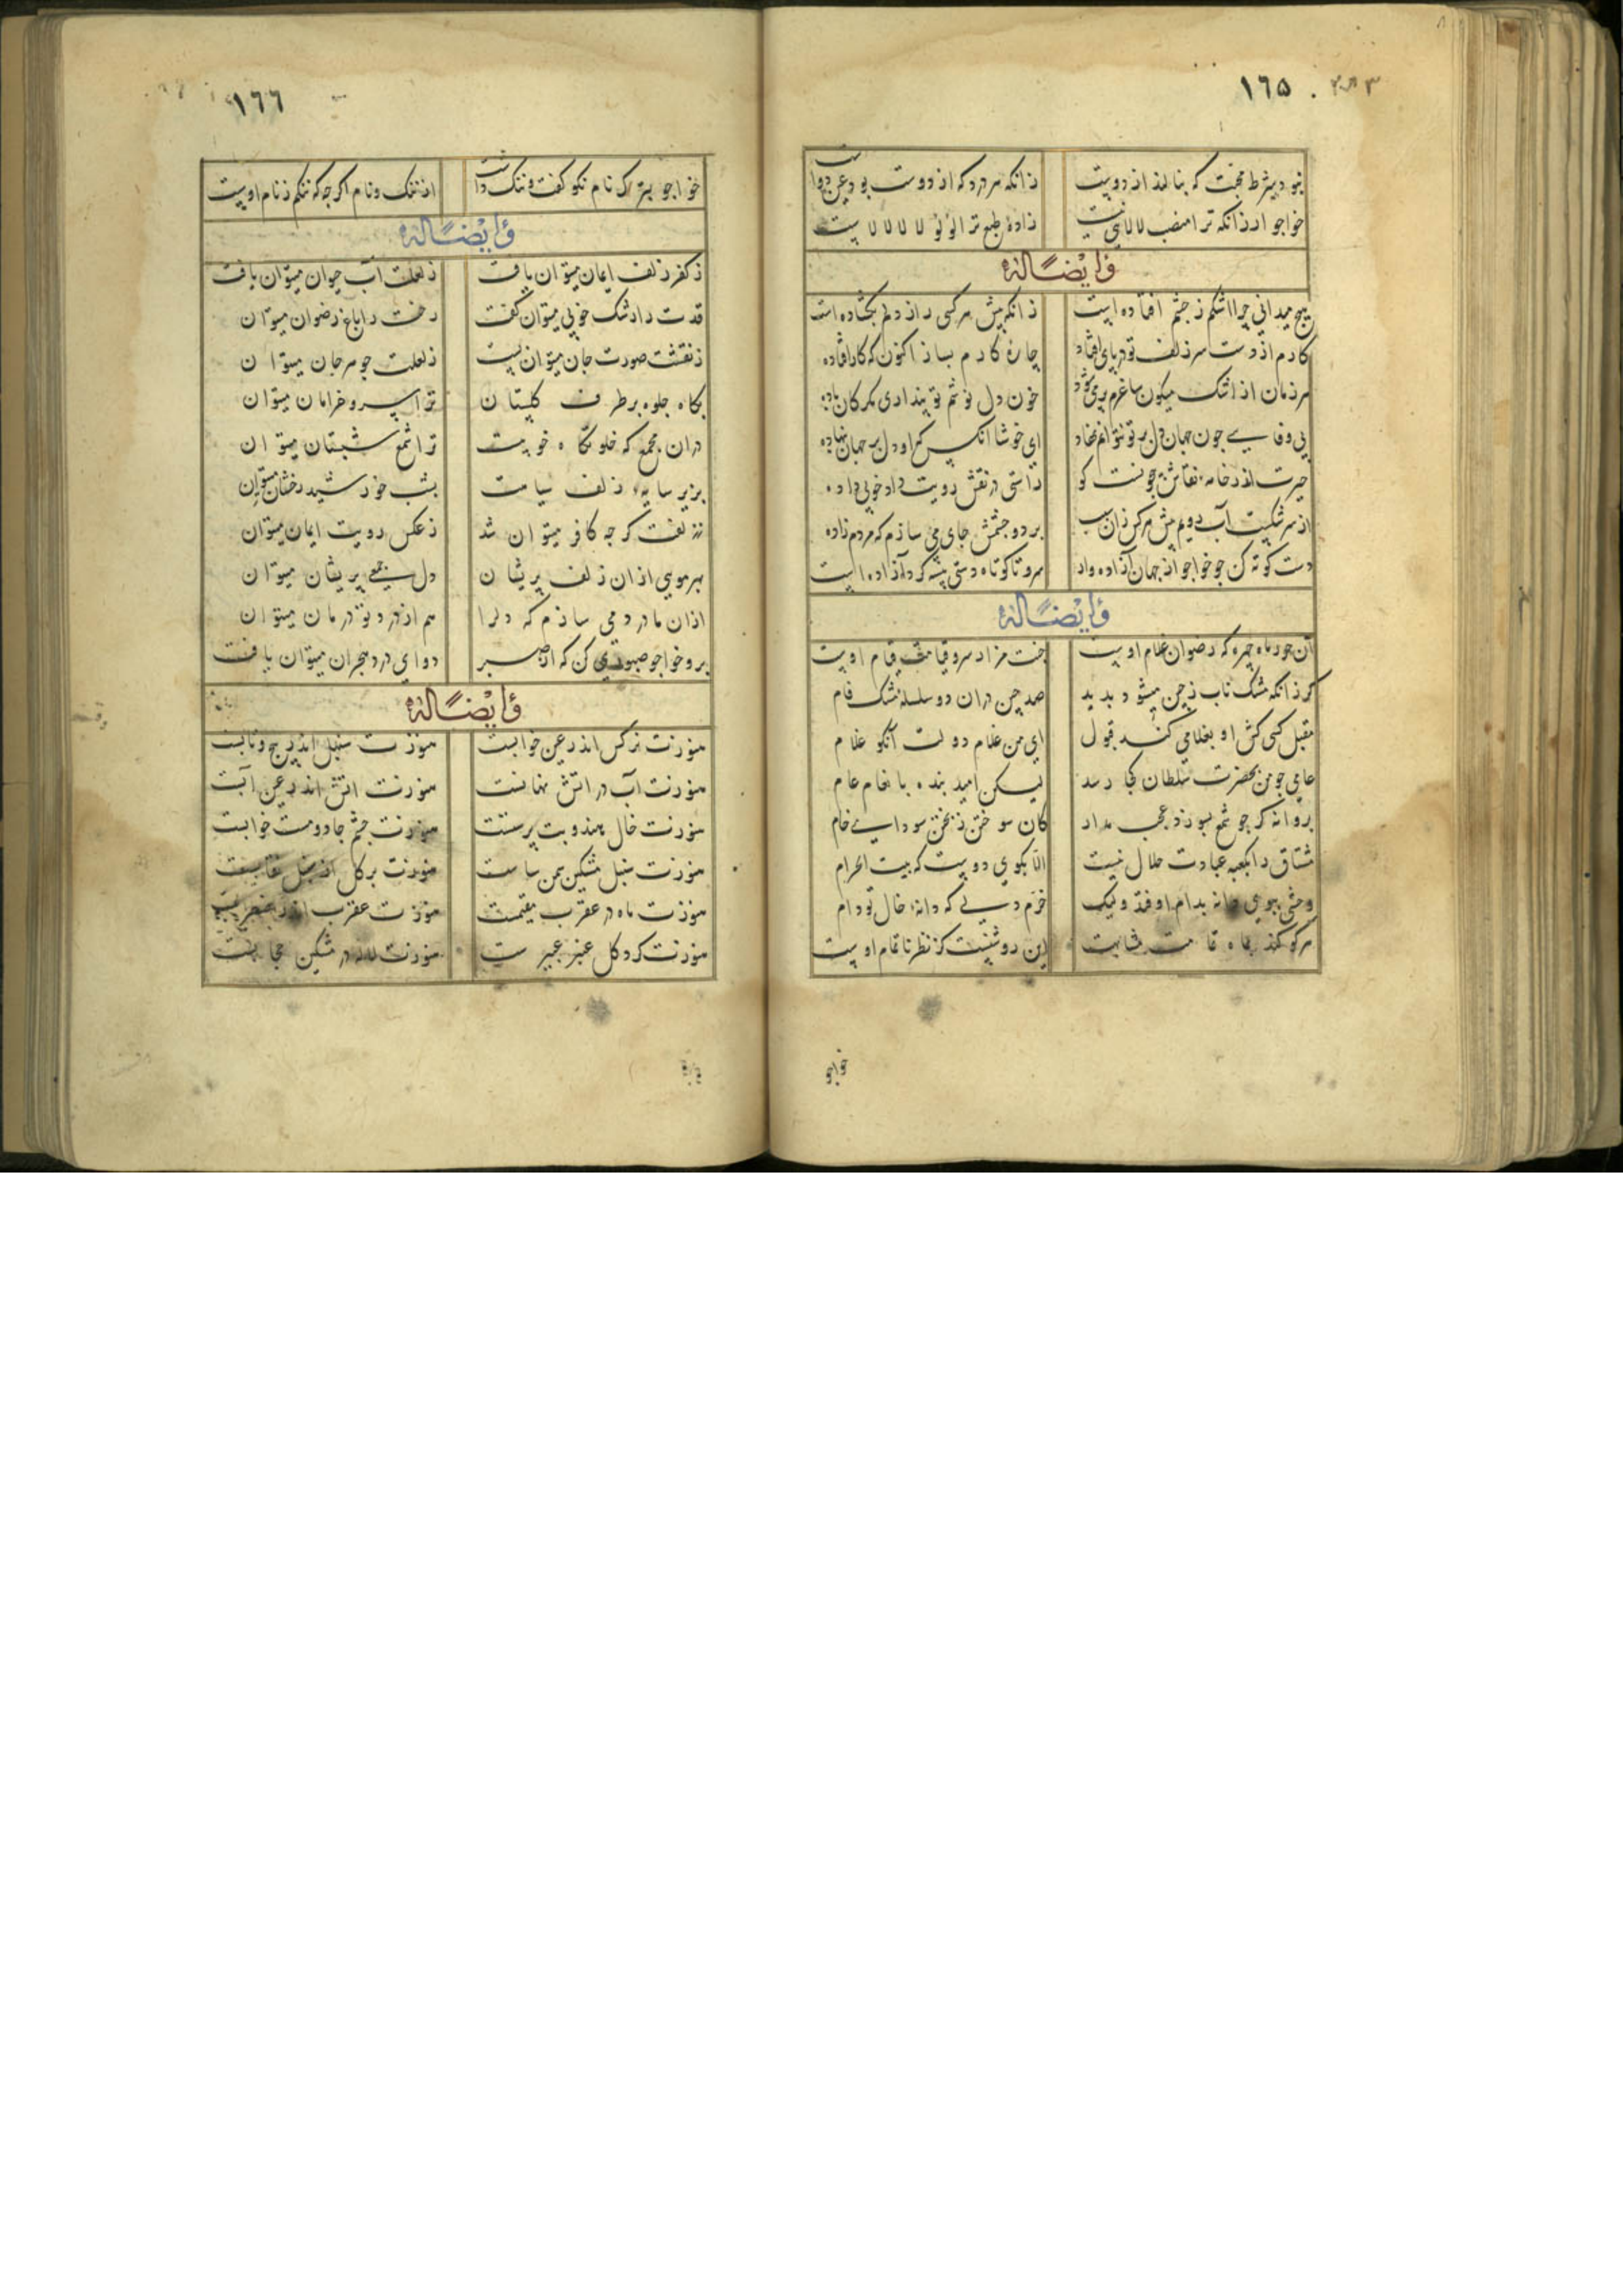 ١٦٥
نبود بشرط محبت که بنالند از دوست زانکه هر درد که از دوست بود عین دواست
خواجو ار زانکه ترا منصب لالائی نیست زادهٔ طبع ترا لؤلؤ لالا لالاست
وایضاً له
هیچ میدانی چرا اشکم ز چشم افتاده است زانکه پیش هر کسی راز دلم بگشاده است
کارم از دست سر زلف تو در پای افتاد چارهٔ کارم بساز اکنون که کار افتاده
هر زمان از اشک میگون ساغرم پر می‌شود خون دل نوشم تو پنداری مگر کان باده
بی وفایی چون جهان دل بر تو نتوانم نهاد ای خوشا آنکس که او دل بر جهان ننهاده
حیرت اندر خامه نقاش بیچونست کو راستی در نقش رویت داد خوبی داده
از سرشکست آب رویم پیش هر کس زان سبب بر دو چشمش جای می سازم که مردم زاده
دست کوته کن چو خواجو از جهان آزاده وار سرو تا کوتاه دستی پیشه کرد آزاده است
وایضاً له
آن حور ماه چهره که رضوان غلام اوست جنت هزار سرو قیامت قیام اوست
گر زانکه مشک ناب ز چین میشود پدید صد چین در آن دو سلسله مشک فام
مقبل کسی کش او بغلامی کند قبول ای من غلام دولت آنکو غلام
عامی چو من بحضرت سلطان کجا رسد لیکن امید بنده بانعام عام
پروانه گر چو شمع بسوزد عجب مدار کان سوختن ز پختن سودای خام
مشتاق را بکعبه عبادت حلال نیست الا بکوی دوست که بیت الحرام
وحشی ببوی دانه بدام اوفتد ولیک خرم دلی که دانهٔ خال تو دام
هر کو کند بماه تمامت مشابهت این روشنست کز نظر ناتمام اوست
خواجو
١٦٦
خواجو بترک نام نکو گفت و ننگ داشت از ننگ و نام اگر چه که ننگم ز نام اوست
وایضاً له
ز کفر زلفت ایمان میتوان یافت ز لعلت آب حیوان میتوان یافت
قدت را رشک خوبی میتوان گفت رخت را باغ رضوان میتوان
ز نقشت صورت جان میتوان بست ز لعلت جوهر جان میتوان
بگاه جلوه بر طرف گلستان ترا سرو خرامان میتوان
در آن مجمع که خلوتگاه خوبیست ترا شمع شبستان میتوان
بزیر سایهٔ زلف سیاهت بشب خورشید رخشان میتوان
ز زلفت گر چه کافر میتوان شد ز عکس رویت ایمان میتوان
بهر مویی از آن زلف پریشان دل جمعی پریشان میتوان
از آن با درد می سازم که دلرا هم از درد تو درمان میتوان
برو خواجو صبوری کن که از صبر دوای درد هجران میتوان یافت
وایضاً له
هنوزت نرگس اندر عین خوابست هنوزت سنبل اندر پیچ و تابست
هنوزت آب در آتش نهانست هنوزت آتش اندر عین آبست
هنوزت خال هندو بت پرستست هنوزت چشم جادو مست خوابست
هنوزت سنبل مشکین سمن ساست هنوزت برگ گل از سنبل نقابست
هنوزت ماه در عقرب مقیمست هنوزت عقرب اندر اضطرابست
هنوزت گرد گل عنبر عبیرست هنوزت لاله در مشکین حجابست